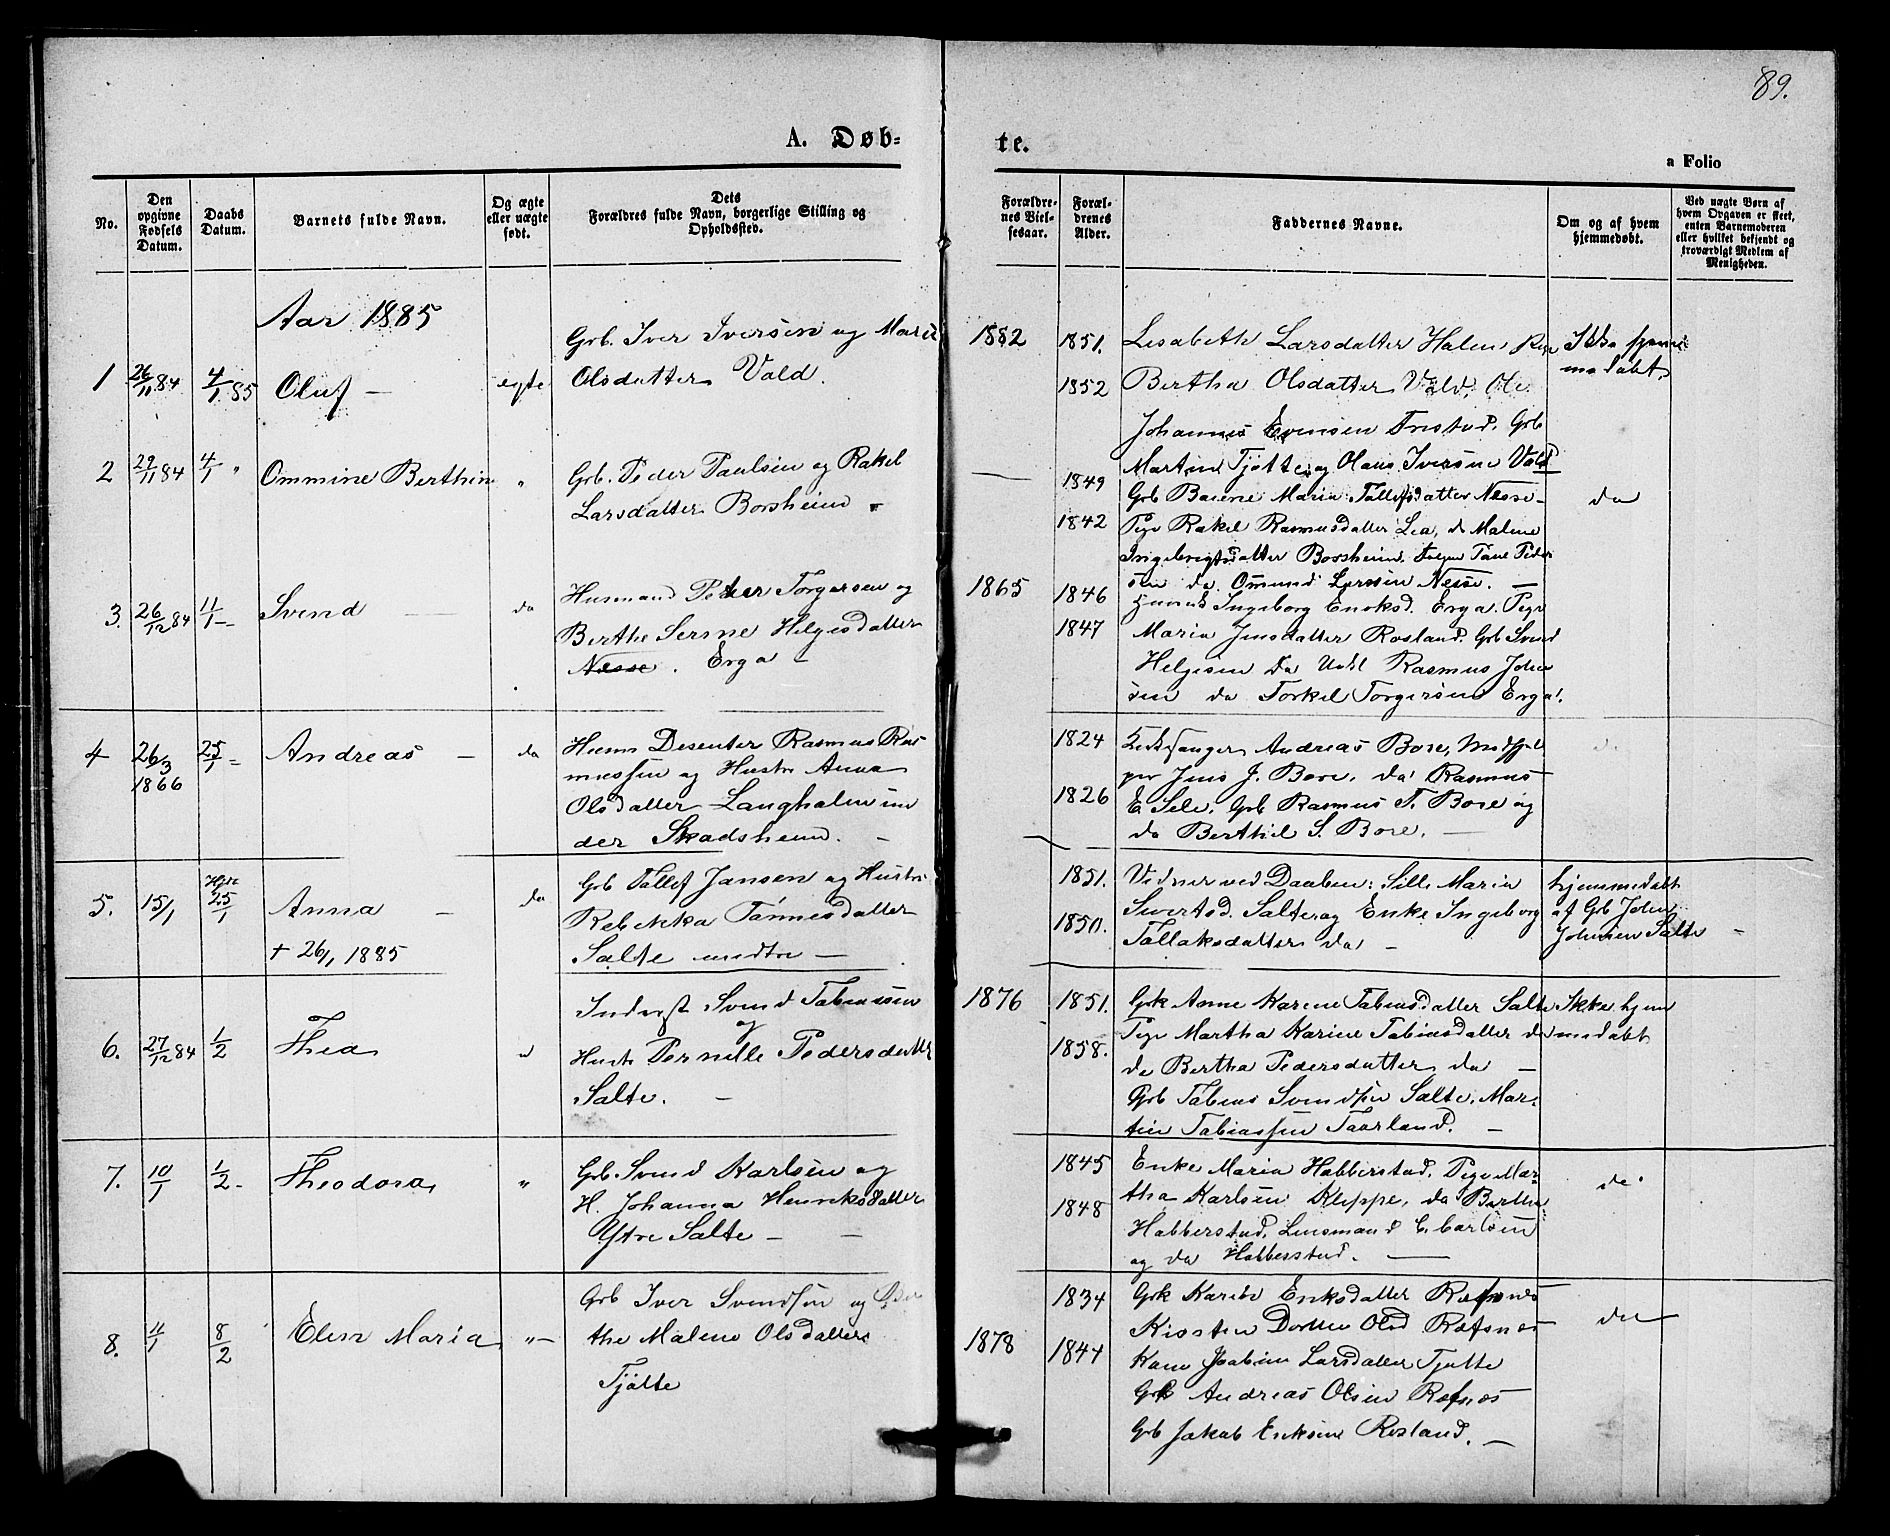 89.
A. Døb-
te.
a Folio
No.
Den opgivne Fødsels Datum.
Daabs Datum.
Barnets fulde Navn.
Og ægte eller uægte født.
Dets Forældres fulde Navn, borgerlige Stilling og Opholdssted.
Forældrenes Vielsesaar.
Forældrenes Alder.
Faddernes Navne.
Om og af hvem hjemmedøbt.
Ved uægte Børn af hvem Opgaven er skeet, enten Barnemoderen eller hvilket bekjendt og troværdigt Medlem af Menigheden.
Aar 1885
1 26/11 84 4/1 85 Oluf — egte
Grb. Iver Iversen og Marie
Olsdatter Vold.
1882
1851.
1852
Lisabeth Larsdatter Halen
Bertha Olsdatter Vold, Ole
Johannes Evensen Grb
Martin Tjøtte og Olaus Iversen Vold
Ikke hjemme
døbt.
2 29/11 84 4/1 " Ommine Berthine "
Grb. Peder Paulsen og Rakel
Larsdatter Borsheim
1849
1842
Grb Maria Tollefsdatter Nesse -
Pige Rakel Rasmusdatter Lea, do Malene
Ingebrigtsdatter Borsheim. Tane Peder
sen do. Ommund Larsen Nesse. —
do
3. 26/12 84 11/1 - Svend — do
Husmand Peder Torgersen og
Berthe Serine Helgesdatter
Nesse. Erga -
1865
1846
1847
Ingeborg Enoksd. Erga. Pige
Maria Jensdatter Rosland. Grb Svend
Helgesen do Rasmus John
sen do Torkel Torgersen Erga.
4 26/3 1866 25/1 = Andreas — do
Husm Desenter Rasmus Ras
mussen og Hustru Anna
Olsdatter Langholen un
der Skadsheim. —
1824
1826
Kirkesanger Andreas Bore, Medhjæl
per Jens J. Bore, do Rasmus
E. Sele, Grb Rasmus T. Bore og
do Berthel S. Bore. —
do
5. 15/1 Hjte 25/1 Anna — do
+ 26/1 1885
Grb Tollef Jansen og Hustru
Rebekka Tønnesdatter
Salte nedre —
1851.
1850.
Vidner ved Daaben: Sille Maria
Sivertsd. Salte og Enke Ingeborg
Tollaksdatter do —
hjemmedøbt
af Grb John
Johnsen Salte —
6. 27/12 84 1/2 Thea "
Inderst Svend Tobiassen
og
Hustr Pernille Pedersdatter
Salte. —
1876
1851.
1858.
Grk Anne Karine Tobiasdatter Salte
Pige Martha Karine Tobiasdatter do
do Bertha Pedersdatter do —
Grb Tobias Svendsen Salte, Mar-
tin Tobiassen Taarland. —
Ikke hjem
medøbt
7. 10/1 1/2 - Theodora "
Grb. Svend Karlsen og
H. Johanna Henriksdatter
Ytre Salte — —
1845
1848
Enke Maria Habberstad. Pige Mar-
tha Karlsen Kleppe, do Berthe
Habberstad, Lensmand C. Carlsen
og do Habberstad. —
do
8. 11/1 8/2 Elen Maria "—
Grb Iver Svendsen og Ber
the Malene Olsdatter
Tjøtte
1878
1834
1844
Grk Karibe Eriksdatter Refsnes
Kirsten Dorthea Olsd Refsnes
Kone Larsdatter Tjøtte
Grb Andreas Olsen Refsnes
Grb Jakob Eriksen Rosland. —
do